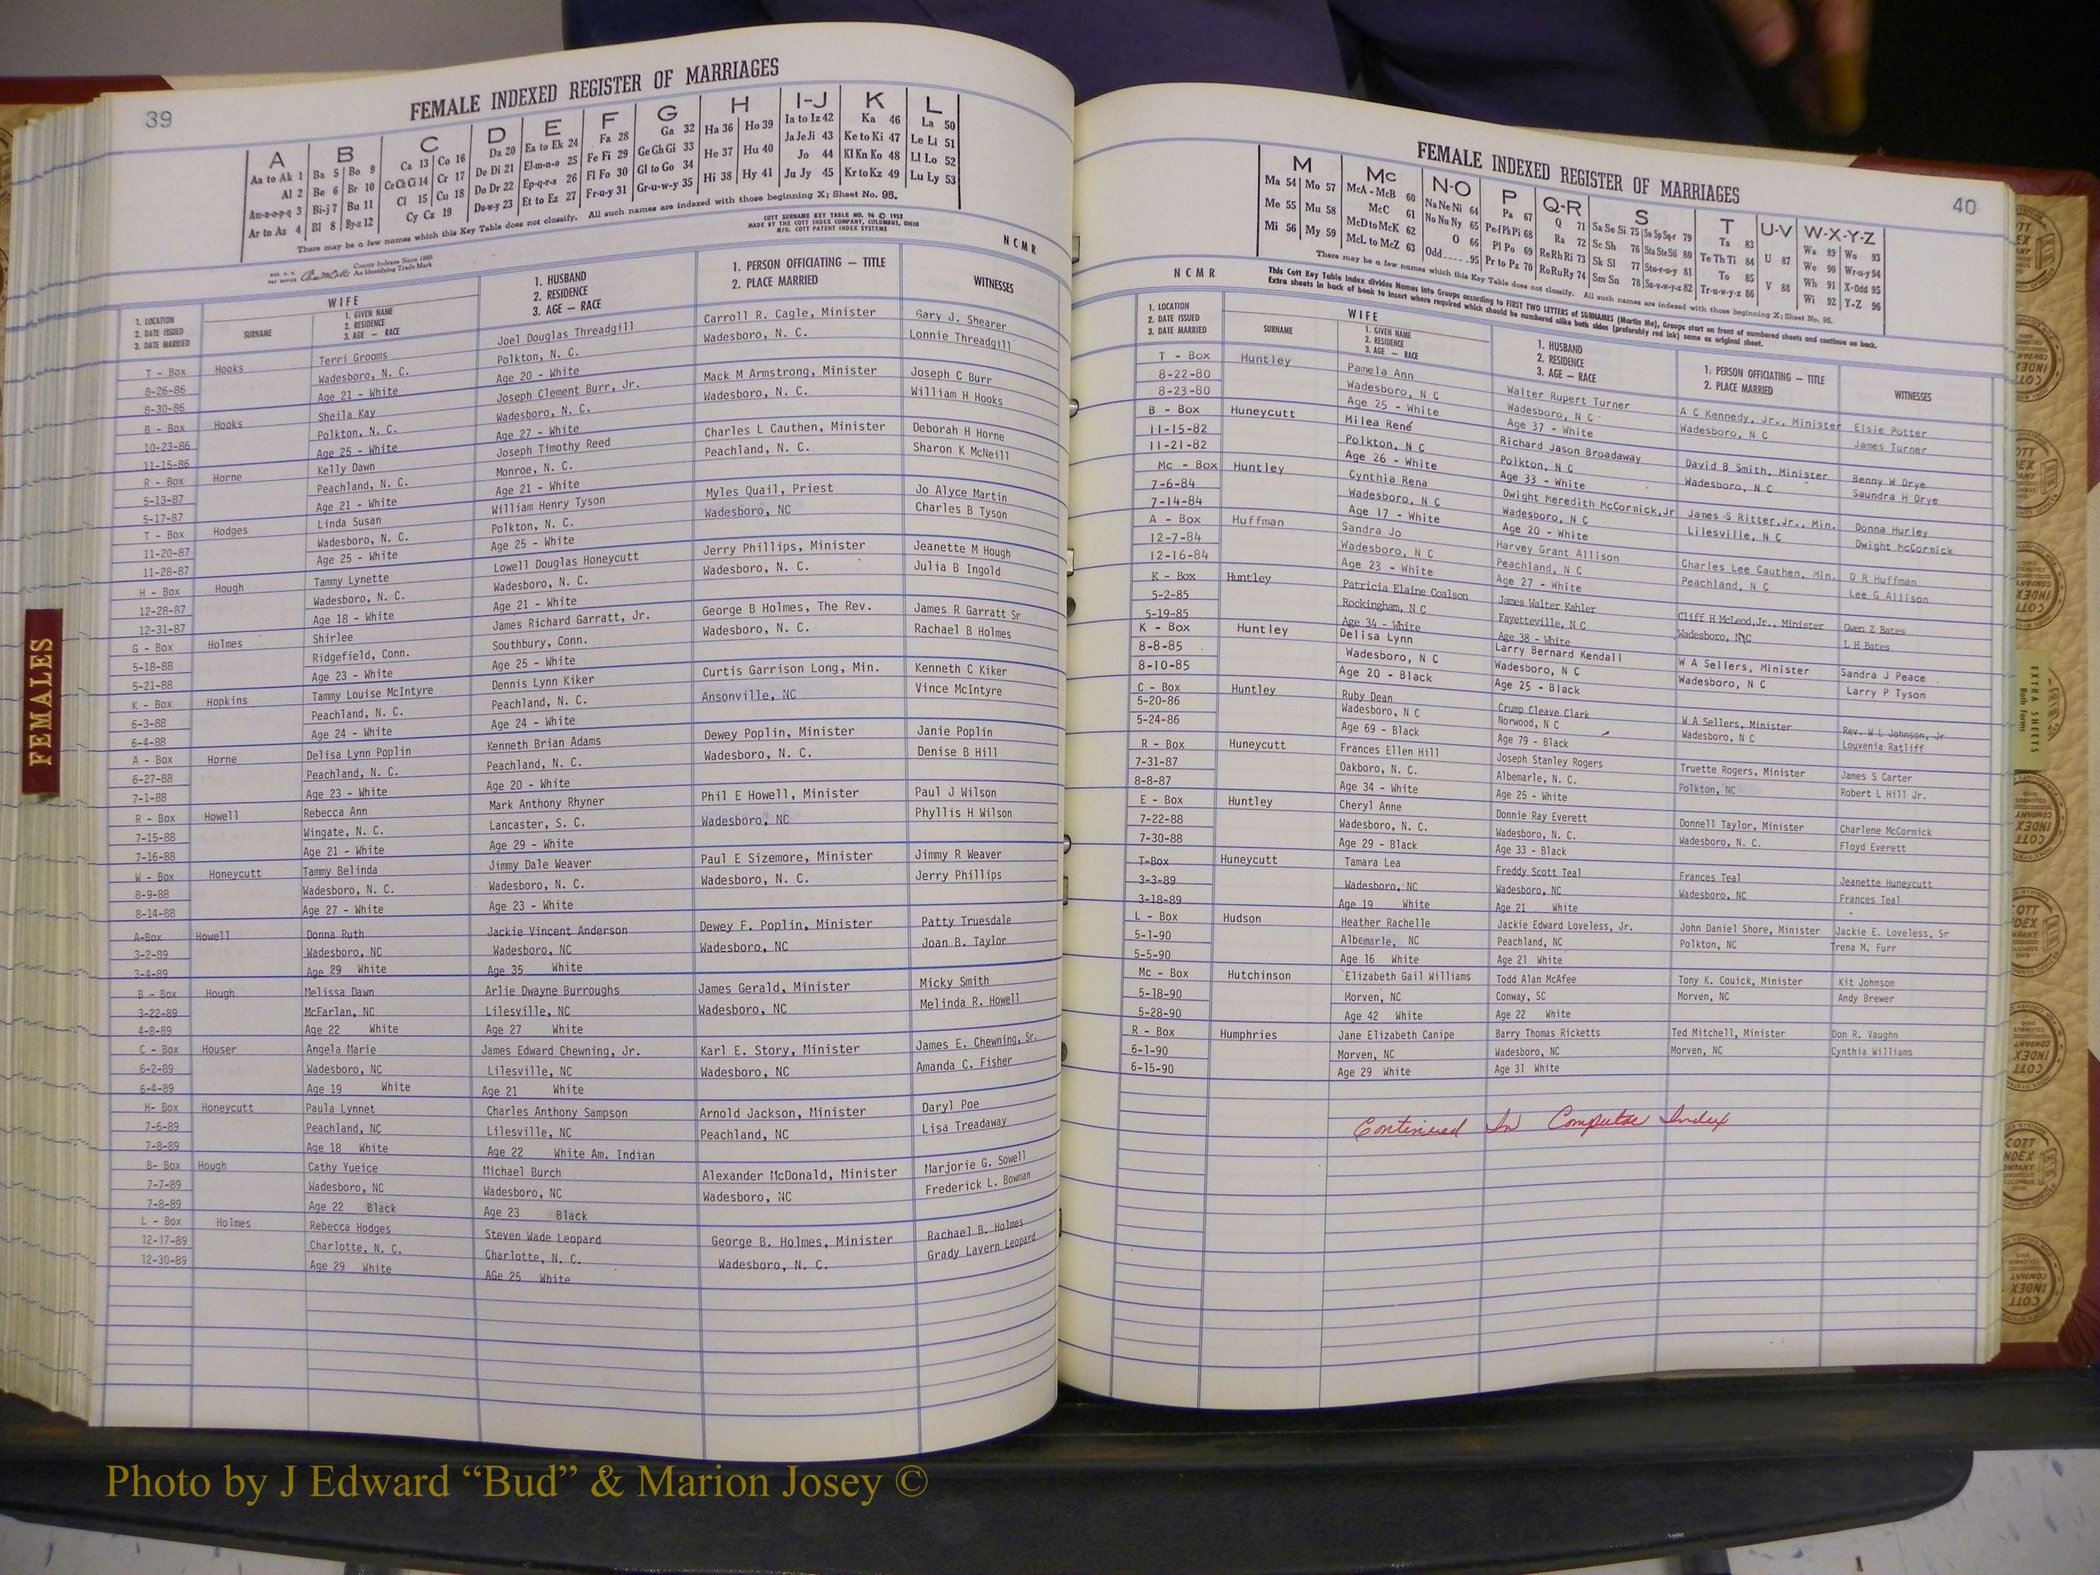 39
FEMALE INDEXED REGISTER OF MARRIAGES
A B C D E F G H I-J K L
Aa to Ak 1 Ba 5 Bo 9 Ca 13 Co 16 Da 20 Ea to Ek 24 Fa 28 Ga 32 Ha 36 Ho 39 Ia to Iz 42 Ka 46 La 50
Al 2 Be 6 Br 10 Ce Ch Ci 14 Cr 17 De Di 21 El-m-n-o 25 Fe Fi 29 Ge Gh Gi 33 He 37 Hu 40 Ja Je Ji 43 Ke to Ki 47 Le Li 51
Am-n-o-p-q 3 Bi-j 7 Bu 11 Cl 15 Cu 18 Do Dr 22 Ep-q-r-s 26 Fl Fo 30 Gl to Go 34 Hi 38 Hy 41 Jo 44 Kl Kn Ko 48 Ll Lo 52
Ar to Az 4 Bl 8 By-z 12 Cy Cz 19 Du-w-y 23 Et to Ez 27 Fr-u-y 31 Gr-u-w-y 35 Ju Jy 45 Kr to Kz 49 Lu Ly 53
There may be a few names which this Key Table does not classify. All such names are indexed with those beginning X; Sheet No. 95.
County Indexes Since 1888
An Identifying Trade Mark
COTT SURNAME KEY TABLE NO. 96 © 1952
MADE BY THE COTT INDEX COMPANY, COLUMBUS, OHIO
MFG. COTT PATENT INDEX SYSTEMS
N C M R
1. LOCATION
2. DATE ISSUED
3. DATE MARRIED
WIFE
SURNAME
1. GIVEN NAME
2. RESIDENCE
3. AGE — RACE
1. HUSBAND
2. RESIDENCE
3. AGE — RACE
1. PERSON OFFICIATING — TITLE
2. PLACE MARRIED
WITNESSES
T - Box Hooks Terri Grooms Joel Douglas Threadgill Carroll R. Cagle, Minister Gary J. Shearer
8-26-86 Wadesboro, N. C. Polkton, N. C. Wadesboro, N. C. Lonnie Threadgill
8-30-86 Age 21 - White Age 20 - White
B - Box Hooks Sheila Kay Joseph Clement Burr, Jr. Mack M Armstrong, Minister Joseph C Burr
10-23-86 Polkton, N. C. Wadesboro, N. C. Wadesboro, N. C. William H Hooks
11-15-86 Age 25 - White Age 27 - White
R - Box Horne Kelly Dawn Joseph Timothy Reed Charles L Cauthen, Minister Deborah H Horne
5-13-87 Peachland, N. C. Monroe, N. C. Peachland, N. C. Sharon K McNeill
5-17-87 Age 21 - White Age 21 - White
T - Box Hodges Linda Susan William Henry Tyson Myles Quail, Priest Jo Alyce Martin
11-20-87 Wadesboro, N. C. Polkton, N. C. Wadesboro, NC Charles B Tyson
11-28-87 Age 25 - White Age 25 - White
H - Box Hough Tammy Lynette Lowell Douglas Honeycutt Jerry Phillips, Minister Jeanette M Hough
12-28-87 Wadesboro, N. C. Wadesboro, N. C. Wadesboro, N. C. Julia B Ingold
12-31-87 Age 18 - White Age 21 - White
G - Box Holmes Shirlee James Richard Garratt, Jr. George B Holmes, The Rev. James R Garratt Sr
5-18-88 Ridgefield, Conn. Southbury, Conn. Wadesboro, N. C. Rachael B Holmes
5-21-88 Age 23 - White Age 25 - White
K - Box Hopkins Tammy Louise McIntyre Dennis Lynn Kiker Curtis Garrison Long, Min. Kenneth C Kiker
6-3-88 Peachland, N. C. Peachland, N. C. Ansonville, NC Vince McIntyre
6-4-88 Age 24 - White Age 24 - White
A - Box Horne Delisa Lynn Poplin Kenneth Brian Adams Dewey Poplin, Minister Janie Poplin
6-27-88 Peachland, N. C. Peachland, N. C. Wadesboro, N. C. Denise B Hill
7-1-88 Age 23 - White Age 20 - White
R - Box Howell Rebecca Ann Mark Anthony Rhyner Phil E Howell, Minister Paul J Wilson
7-15-88 Wingate, N. C. Lancaster, S. C. Wadesboro, NC Phyllis H Wilson
7-16-88 Age 21 - White Age 29 - White
W - Box Honeycutt Tammy Belinda Jimmy Dale Weaver Paul E Sizemore, Minister Jimmy R Weaver
8-9-88 Wadesboro, N. C. Wadesboro, N. C. Wadesboro, N. C. Jerry Phillips
8-14-88 Age 27 - White Age 23 - White
A-Box Howell Donna Ruth Jackie Vincent Anderson Dewey F. Poplin, Minister Patty Truesdale
3-2-89 Wadesboro, NC Wadesboro, NC Wadesboro, NC Joan B. Taylor
3-4-89 Age 29 White Age 35 White
B - Box Hough Melissa Dawn Arlie Dwayne Burroughs James Gerald, Minister Micky Smith
3-22-89 McFarlan, NC Lilesville, NC Wadesboro, NC Melinda R. Howell
4-8-89 Age 22 White Age 27 White
C - Box Houser Angela Marie James Edward Chewning, Jr. Karl E. Story, Minister James E. Chewning, Sr.
6-2-89 Wadesboro, NC Lilesville, NC Wadesboro, NC Amanda C. Fisher
6-4-89 Age 19 White Age 21 White
H- Box Honeycutt Paula Lynnet Charles Anthony Sampson Arnold Jackson, Minister Daryl Poe
7-6-89 Peachland, NC Lilesville, NC Peachland, NC Lisa Treadaway
7-8-89 Age 18 White Age 22 White Am. Indian
B- Box Hough Cathy Yueice Michael Burch Alexander McDonald, Minister Marjorie G. Sowell
7-7-89 Wadesboro, NC Wadesboro, NC Wadesboro, NC Frederick L. Bowman
7-8-89 Age 22 Black Age 23 Black
L - Box Holmes Rebecca Hodges Steven Wade Leopard George B. Holmes, Minister Rachael B. Holmes
12-17-89 Charlotte, N. C. Charlotte, N. C. Wadesboro, N. C. Grady Lavern Leopard
12-30-89 Age 29 White AGe 25 White
FEMALES
FEMALE INDEXED REGISTER OF MARRIAGES
40
M Mc N-O P Q-R S T U-V W-X-Y-Z
Ma 54 Mo 57 McA - McB 60 Na Ne Ni 64 Pa 67 Q 71 Sa Se Si 75 So Sp Sq-r 79 Ta 83 U 87 Wa 89 Wo 93
Me 55 Mu 58 McC 61 No Nu Ny 65 Pe-f Ph Pi 68 Ra 72 Sc Sh 76 Sta Ste Sti 80 Te Th Ti 84 V 88 We 90 Wr-u-y 94
Mi 56 My 59 McD to McK 62 O 66 Pl Po 69 Re Rh Ri 73 Sk Sl 77 Sto-r-u-y 81 To 85 Wh 91 X-Odd 95
McL to McZ 63 Odd 95 Pr to Pz 70 Ro Ru Ry 74 Sm Sn 78 Su-v-w-y-z 82 Tr-u-w-y-z 86 Wi 92 Y-Z 96
There may be a few names which this Key Table does not classify. All such names are indexed with those beginning X; Sheet No. 95.
N C M R
This Cott Key Table Index divides Names into Groups according to FIRST TWO LETTERS of SURNAMES (Martin Ma), Groups start on front of numbered sheets and continue on back.
Extra sheets in back of book to insert where required which should be numbered alike both sides (preferably red ink) same as original sheet.
1. LOCATION
2. DATE ISSUED
3. DATE MARRIED
WIFE
SURNAME
1. GIVEN NAME
2. RESIDENCE
3. AGE — RACE
1. HUSBAND
2. RESIDENCE
3. AGE — RACE
1. PERSON OFFICIATING — TITLE
2. PLACE MARRIED
WITNESSES
T - Box Huntley Pamela Ann Walter Rupert Turner A C Kennedy, Jr., Minister Elsie Potter
8-22-80 Wadesboro, N C Wadesboro, N C Wadesboro, N C James Turner
8-23-80 Age 25 - White Age 37 - White
B - Box Huneycutt Milea René Richard Jason Broadaway David B Smith, Minister Benny W Drye
11-15-82 Polkton, N C Polkton, N C Wadesboro, N C Saundra H Drye
11-21-82 Age 26 - White Age 33 - White
Mc - Box Huntley Cynthia Rena Dwight Meredith McCormick,Jr James S Ritter,Jr., Min. Donna Hurley
7-6-84 Wadesboro, N C Wadesboro, N C Lilesville, N C Dwight McCormick
7-14-84 Age 17 - White Age 20 - White
A - Box Huffman Sandra Jo Harvey Grant Allison Charles Lee Cauthen, Min. O R Huffman
12-7-84 Wadesboro, N C Peachland, N C Peachland, N C Lee G Allison
12-16-84 Age 23 - White Age 27 - White
K - Box Huntley Patricia Elaine Coalson James Walter Kahler Cliff H McLeod,Jr., Minister Gwen Z Bates
5-2-85 Rockingham, N C Fayetteville, N C Wadesboro, N C L H Bates
5-19-85 Age 34 - White Age 38 - White
K - Box Huntley Delisa Lynn Larry Bernard Kendall W A Sellers, Minister Sandra J Peace
8-8-85 Wadesboro, N C Wadesboro, N C Wadesboro, N C Larry P Tyson
8-10-85 Age 20 - Black Age 25 - Black
C - Box Huntley Ruby Dean Crump Cleave Clark W A Sellers, Minister Rev. W L Johnson, Jr
5-20-86 Wadesboro, N C Norwood, N C Wadesboro, N C Louvenia Ratliff
5-24-86 Age 69 - Black Age 79 - Black
R - Box Huneycutt Frances Ellen Hill Joseph Stanley Rogers Truette Rogers, Minister James S Carter
7-31-87 Oakboro, N. C. Albemarle, N. C. Polkton, NC Robert L Hill Jr.
8-8-87 Age 34 - White Age 25 - White
E - Box Huntley Cheryl Anne Donnie Ray Everett Donnell Taylor, Minister Charlene McCormick
7-22-88 Wadesboro, N. C. Wadesboro, N. C. Wadesboro, N. C. Floyd Everett
7-30-88 Age 29 - Black Age 33 - Black
T-Box Huneycutt Tamara Lea Freddy Scott Teal Frances Teal Jeanette Huneycutt
3-3-89 Wadesboro, NC Wadesboro, NC Wadesboro, NC Frances Teal
3-18-89 Age 19 White Age 21 White
L - Box Hudson Heather Rachelle Jackie Edward Loveless, Jr. John Daniel Shore, Minister Jackie E. Loveless, Sr
5-1-90 Albemarle, NC Peachland, NC Polkton, NC Trena M. Furr
5-5-90 Age 16 White Age 21 White
Mc - Box Hutchinson Elizabeth Gail Williams Todd Alan McAfee Tony K. Couick, Minister Kit Johnson
5-18-90 Morven, NC Conway, SC Morven, NC Andy Brewer
5-28-90 Age 42 White Age 22 White
R - Box Humphries Jane Elizabeth Canipe Barry Thomas Ricketts Ted Mitchell, Minister Don R. Vaughn
6-1-90 Morven, NC Wadesboro, NC Morven, NC Cynthia Williams
6-15-90 Age 29 White Age 31 White
Continued In Computer Index
EXTRA SHEETS
Both Forms
Photo by J Edward “Bud” & Marion Josey ©